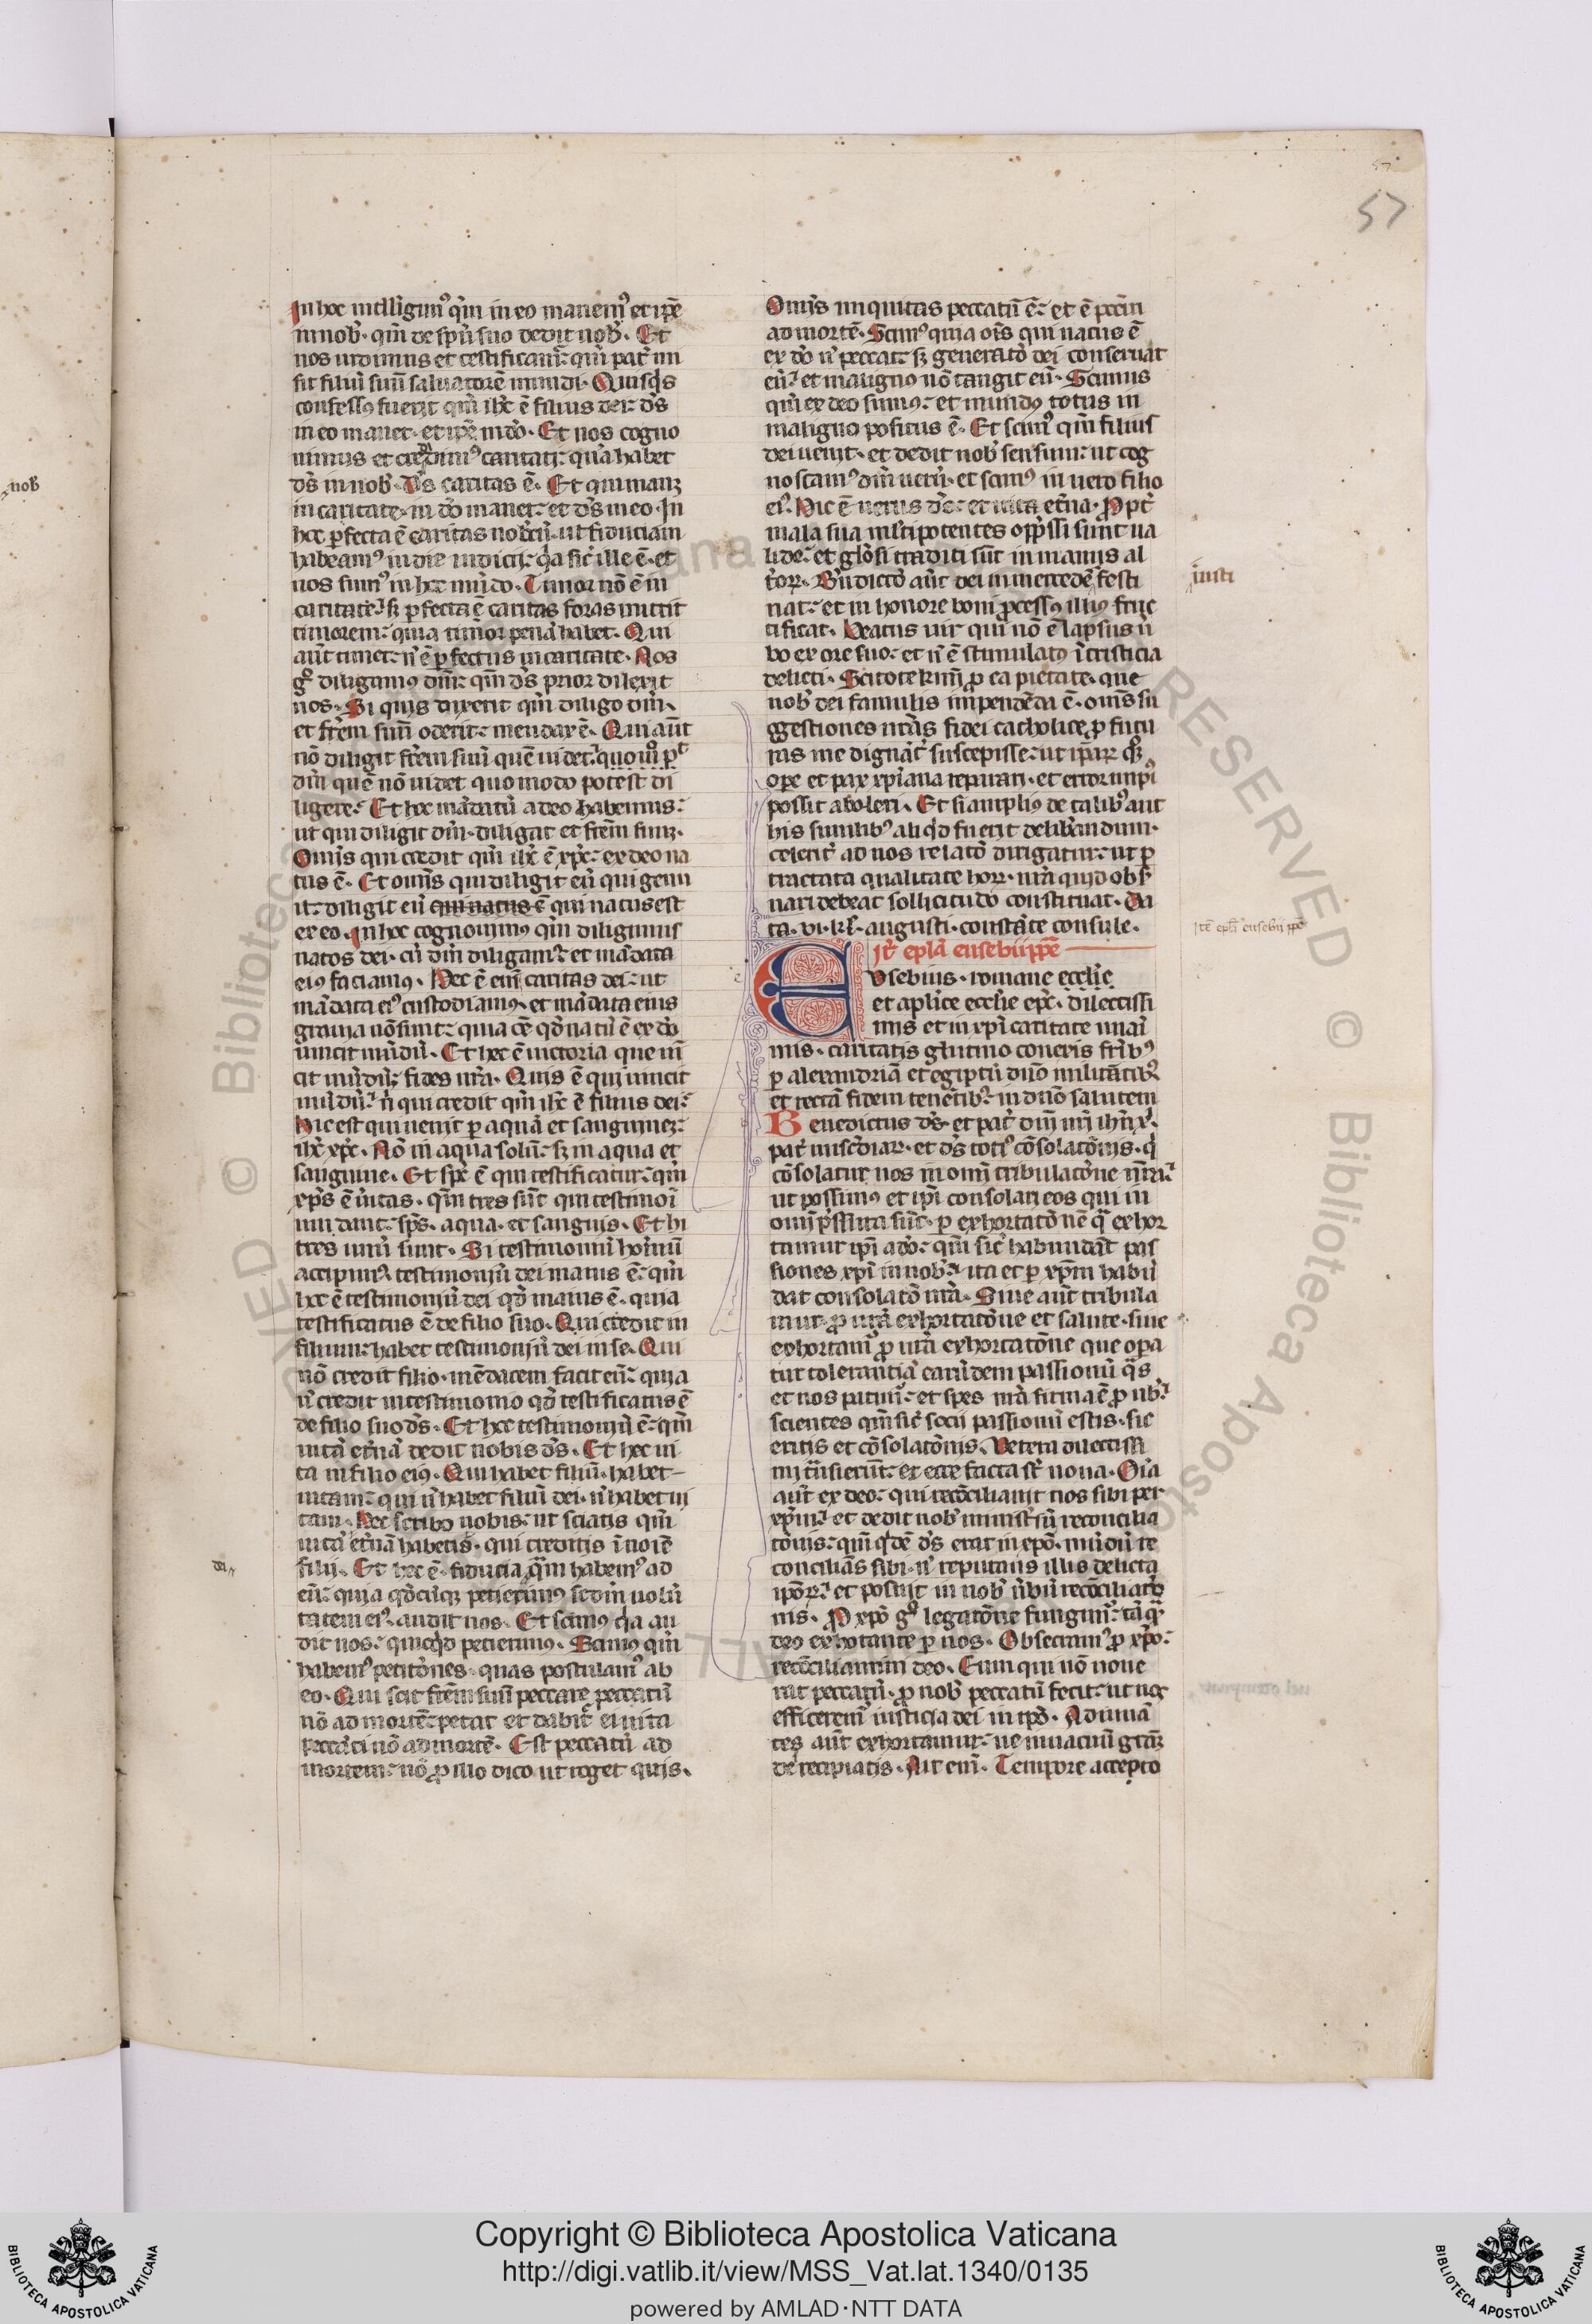 57
57
In hoc intelligimꝰ qm̄ in eo manemꝰ et ip̄e
in nob̄. qm̄ de sp̄u suo dedit nob̄. Et
nos uidimus et testificamur qm̄ pat̄ mi
sit filiū suū saluatorē mundi. Quisq̄s
confessꝰ fuerit qm̄ ihc̄ ē filius dei: dš
in eo manet. et ip̄e in dō. Et nos cogno
uimus et credimꝰ caritati: quā habet
dš in nob̄. Dš caritas ē. Et qui manꝫ
in caritate. in dō manet: et dš in eo. In
hoc ꝑfecta ē caritas nob̄cū. ut fiduciam
habeamꝰ in die iudicij: q̄a sic̄ ille ē. et
nos sumꝰ in hoc mūdo. Timor nō ē in
caritate: sꝫ ꝑfecta ē caritas foras mittit
timorem: quia timor penā habet. Qui
aūt timet: n̄ ē ꝑfectus in caritate. Nos
gͦ diligamus dm̄: qm̄ dš prior dilexit
nos. Si quis dixerit qm̄ diligo dm̄.
et frēm suū oderit: mendax ē. Qui aūt
nō diligit frēm suū quē uidet: quoīͦ pͭ
dm̄ quē nō uidet quomodo potest di
ligere: Et hoc mādatū a deo habemus:
ut qui diligit dm̄. diligat et frēm suū.
Omīs qui credit qm̄ ihc̄ ē xp̄c: ex deo na
tus ē. Et omīs qui diligit eū qui genu
it: diligit eū qui natus ē qui natus est
ex eo. In hoc cognouimꝰ qm̄ diligimus
natos dei. cū dm̄ diligamꝰ: et mādata
eiꝰ faciamꝰ. Hec ē enī caritas dei: ut
mādata eiꝰ custodiamꝰ. et mādata eius
grauia nō sunt: quia oē qd̄ natū ē ex dō
uincit mūdū. Et hec ē uictoria que uī
cit mūdū: fides nr̄a. Quis ē qui uincit
mūdū: n̄ qui credit qm̄ ihc̄ ē filius dei:
Hic est qui uenit ꝑ aquā et sanguinē:
ihc̄ xp̄c. Nō in aqua solū: sꝫ in aqua et
sanguine. Et sp̄c ē qui testificatur: qm̄
xp̄s ē ūitas. qm̄ tres sūt qui testimoī
um dant: sp̄s. aqua. et sanguis. Et hi
tres unū sunt. Si testimoniū hoīnū
accipimꝰ: testimoniū dei maius ē: qm̄
hoc ē testimoniū dei qd̄ maius ē. quia
testificatus ē de filio suo. Qui credit in
filium: habet testimoniū dei in se. Qui
nō credit filio. mēdacem facit eū: quia
n̄ credit in testimonio qd̄ testificatus ē
de filio suo dš. Et hoc testimoniū ē: qm̄
uitā et̄nā dedit nobis dš. Et hec ui
ta in filio eiꝰ. Qui habet filiū. habet
uitam: qui n̄ habet filiū dei. n̄ habet ui
tam. Hec scribo uobis: ut sciatis qm̄
uitā et̄nā habetis. qui creditis ī noīē
filij. Et hec ē. fiducia quā habemꝰ ad
eū: quia qd̄cūqꝫ petierimꝰ scd̄m uolū
tatem eiꝰ. audit nos. Et scimꝰ q̄a au
dit nos: quicq̄d petierimus. Scimꝰ qm̄
habemꝰ petitōnes. quas postulamꝰ ab
eo. Qui scit frēm suū peccare peccatū
nō ad mortē: petat et dabit̄ ei uita
peccāti nō ad mortē. Est peccatū ad
mortem: nō ꝓ illo dico ut roget quis.
da
Omīs iniquitas peccatū ē: et ē pccm̄
ad mortē. Scimꝰ quia oīs qui natus ē
ex dō n̄ peccat: sꝫ generatō dei conseruat
eū: et malignꝰ nō tangit eū. Scimus
qm̄ ex deo sumꝰ: et mundꝰ totus in
maligno positus ē. Et scimꝰ qm̄ filius
dei uenit. et dedit nob̄ sensum: ut cog
noscamꝰ dm̄ uerū. et simꝰ in uero filio
eiꝰ. Hic ē uerus dš: et uita et̄na. Ꝓpt̄
mala sua multi potentes opp̄ssi sunt ua
lide: et glōsi traditi sūt in manus al
t̄orꝝ. Bn̄dictō aūt dei in mercedē festi
iusti
nat: et in honore boni ꝓcessꝰ illiꝰ fruc
tificat. Beatus uir qui nō ē lapsus ū
bo ex ore suo: et n̄ ē stimulatꝰ ī tristicia
delicti. Scitote km̄i ꝓ ea pietate. que
nob̄ dei famulis impendēda ē. omīs su
ggestiones ur̄as fidei catholice ꝓfutu
ras me dignāt̄ suscepisse: ut ip̄arꝝ qꝫ
ope et pax xp̄iana reparari. et error impī
possit aboleri. Et si ampliꝰ de talibꝰ aut
his similibꝰ aliq̄d fuerit delib̄andum.
celerit̄ ad nos relatō dirigatur: ut ꝑ
tractata qualitate horꝝ. nr̄a quid obs̄
uari debeat sollicitudō constituat. Da
ta. vi. kl̄. augusti. constāte consule.
It̄ ep̄lā eusebii pp̄e
Itē ep̄lā eusebii pp̄e
Eusebius. romane eccl̄ie
et ap̄lice eccl̄ie ep̄c. dilectissi
mis et in xp̄i caritate unāi
mis. caritatis glutino conexis fr̄ibꝰ
ꝑ alexandriā et egiptū dn̄o militātibꝰ
et rectā fidem tenētibꝰ: in dn̄o salutem
Benedictus dš. et pat̄ dn̄i nr̄i ih̄u x̄.
pat̄ misc̄diarꝝ. et dš totiꝰ cōsolatōnis. q̄
cōsolatur nos in omī tribulatōne nr̄a:
ut possimꝰ et ip̄i consolari eos qui in
omī p̄ssura sūt. ꝑ exhortatōnē q̄ exhor
tamur ip̄i a dō: qm̄ sic̄ habundāt pas
siones xp̄i in nob̄: ita et ꝑ xp̄m habū
dat consolatō nr̄a. Siue aūt tribula
mur. ꝓ ur̄a exhortatōne et salute. siue
exhortamꝰ ꝓ ur̄a exhortatōne que opa
tur tolerantiā earūdem passionū q̄s
et nos patimꝰ: et spes nr̄a firma ē ꝓ uob̄:
scientes qm̄ sic̄ socii passionū estis. sic
eritis et cōsolatōnis. Vetera dilectissi
mi trāsierūt: et ecce facta sūt noua. Oīa
aūt ex deo: qui recōciliauit nos sibi per
xp̄m: et dedit nob̄ minist̄iū reconcilia
tōnis: qm̄ q̄dē dš erat in xp̄o. mūdū re
conciliās sibi. n̄ reputans illis delicta
ip̄orꝝ: et posuit in nob̄ ūbū recōciliatō
nis. Ꝓ xp̄o gͦ legatōne fungimꝰ: tāq̄
deo exhortante ꝑ nos. Obsecramꝰ ꝓ xp̄o:
recōciliamini deo. Eum qui nō noue
rat peccatū. ꝓ nob̄ peccatū fecit: ut nos
efficeremꝰ iusticia dei in ip̄o. Adiuuā
tes aūt exhortamur: ne in uacuū grām
dei recipiatis. Ait enī. Tempore accepto
nob̄
Copyright © Biblioteca Apostolica Vaticana
http://digi.vatlib.it/view/MSS_Vat.lat.1340/0135
powered by AMLAD·NTT DATA
BIBLIOTECA APOSTOLICA VATICANA
BIBLIOTECA APOSTOLICA VATICANA